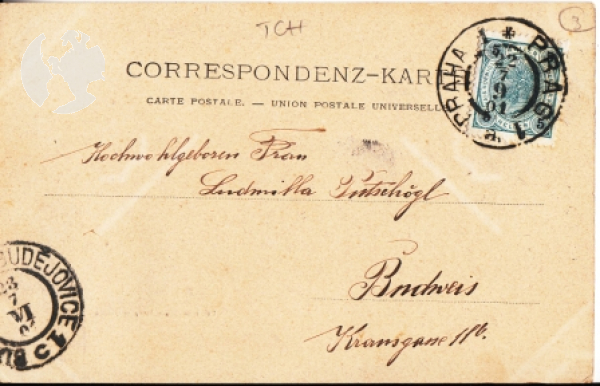 TCH
3
CORRESPONDENZ-KART
CARTE POSTALE. — UNION POSTALE UNIVERSELLE
PRAHA 1 * PRAG 1
22
7
9
01
Hochwohlgeboren Frau
Ludmilla
Budweis
Kransgasse 11b.
BUDĚJOVICE 1
23
7
VI
BU